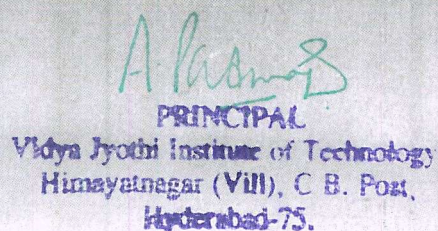 PRINCIPAL
Vidya Jyothi Institute of Technology
Himayatnagar (Vill), C B. Post,
Hyderabad-75.